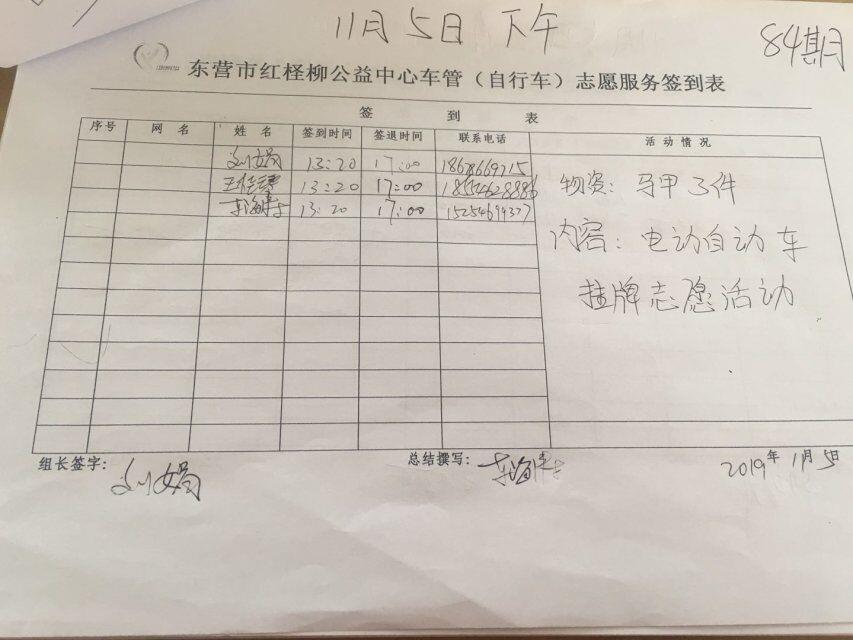 11月5日 下午
84期
东营市红柽柳公益中心车管（自行车）志愿服务签到表
签 到 表
序号 网 名 姓 名 签到时间 签退时间 联系电话 活 动 情 况
刘娟 13:20 17:00
13:20 17:00 18554628886
13:20 17:00 15254694377
物资: 马甲3件
内容: 电动自动车
挂牌志愿活动
组长签字: 刘娟 总结撰写: 2019年11月5日